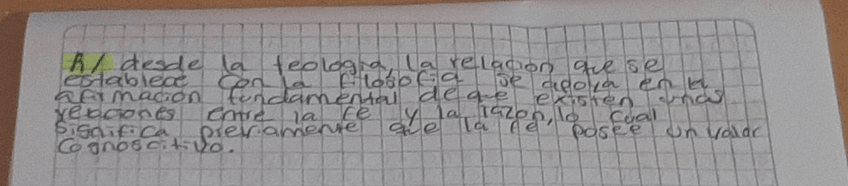 A/ desde la teologia, la relacion que se
establece con la filosofia se apoya en la
afirmación fundamental de que existen unas
relaciones entre la fe y la razon, lo cual
significa previamente que la fe posee un valor
Cognoscitivo.